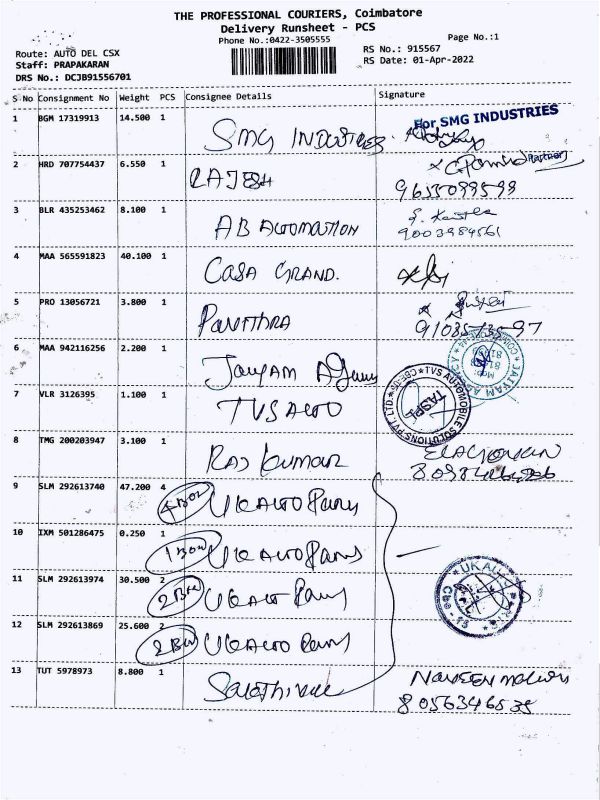 THE PROFESSIONAL COURIERS, Coimbatore
Delivery Runsheet - PCS
Phone No.:0422-3505555
Page No.:1
Route: AUTO DEL CSX
Staff: PRAPAKARAN
DRS No.: DCJB91556701
RS No.: 915567
RS Date: 01-Apr-2022
S No Consignment No Weight PCS Consignee Details Signature
1 BGM 17319913 14.500 1 SMG INDUSTRIES. For SMG INDUSTRIES
Partner
2 HRD 707754437 6.550 1 RAJESH
3 BLR 435253462 8.100 1 AB AUTOMATION
9003984561
4 MAA 565591823 40.100 1 CASA GRAND.
5 PRO 13056721 3.800 1 PAVITHRA
6 MAA 942116256 2.200 1 JAIYAM Agency
JAIYAM AGENCY
7 VLR 3126395 1.100 1 TVS AUTO
TVS AUTOMOBILE SOLUTIONS PVT. LTD
TASPL
8 TMG 200203947 3.100 1 RAJ KUMAR
9 SLM 292613740 47.200 4 4 Box UK AUTO Parts
10 IXM 501286475 0.250 1 1 Box UK AUTO Parts
11 SLM 292613974 30.500 2 2 Box UK AUTO Parts
12 SLM 292613869 25.600 2 Box UK AUTO Parts
13 TUT 5978973 8.800 1 Sakthivel
8056346535